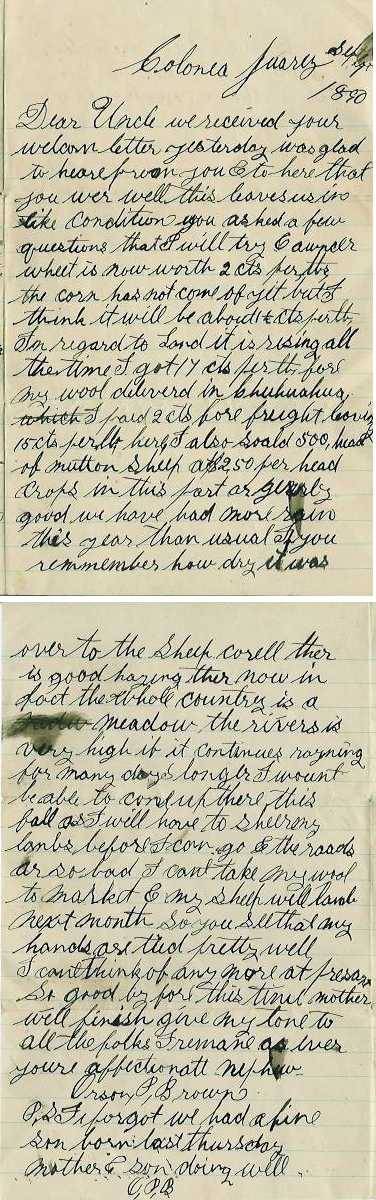 Colonea Juarez Sept
1890
Dear Uncle we received your
welcom letter yesterday was glad
to heare from you & to here that
you wer well this leaves us in
like condition you asked a few
questions that I will try & awncer
wheet is now worth 2 cts per lb
the corn has not come of yit but I
think it will be about 1 cts per lb
In regard to Land it is rising all
the time I got 17 cts per lb fore
my wool deliverd in Chuhuahua,
which I paid 2 cts fore freight leaving
15 cts per lb here, I also soald 500, head
of mutton sheep at $2.50 per head
Crops in this part ar generly
good we have had more rain
this year than usual if you
remmember how dry it was
over to the sheep corell ther
is good haying ther now in
fact the whole country is a
meadow the rivers is
very high if it continues rayning
for many days longer I wount
be able to come up there this
fall as I will have to sheer my
lambs before I can go & the roads
ar so bad I cant take my wool
to market & my sheep will lamb
next month so you see that my
hands are tied pretty well
I cant think of any more at presant
So good by fore this time mother
will finish give my love to
all the folks I remane as ever
youre affectionatt nephew
Orson P, Brown
P,S I forgot we had a fine
son born last thursday
mother & son doing well.
O,P,B